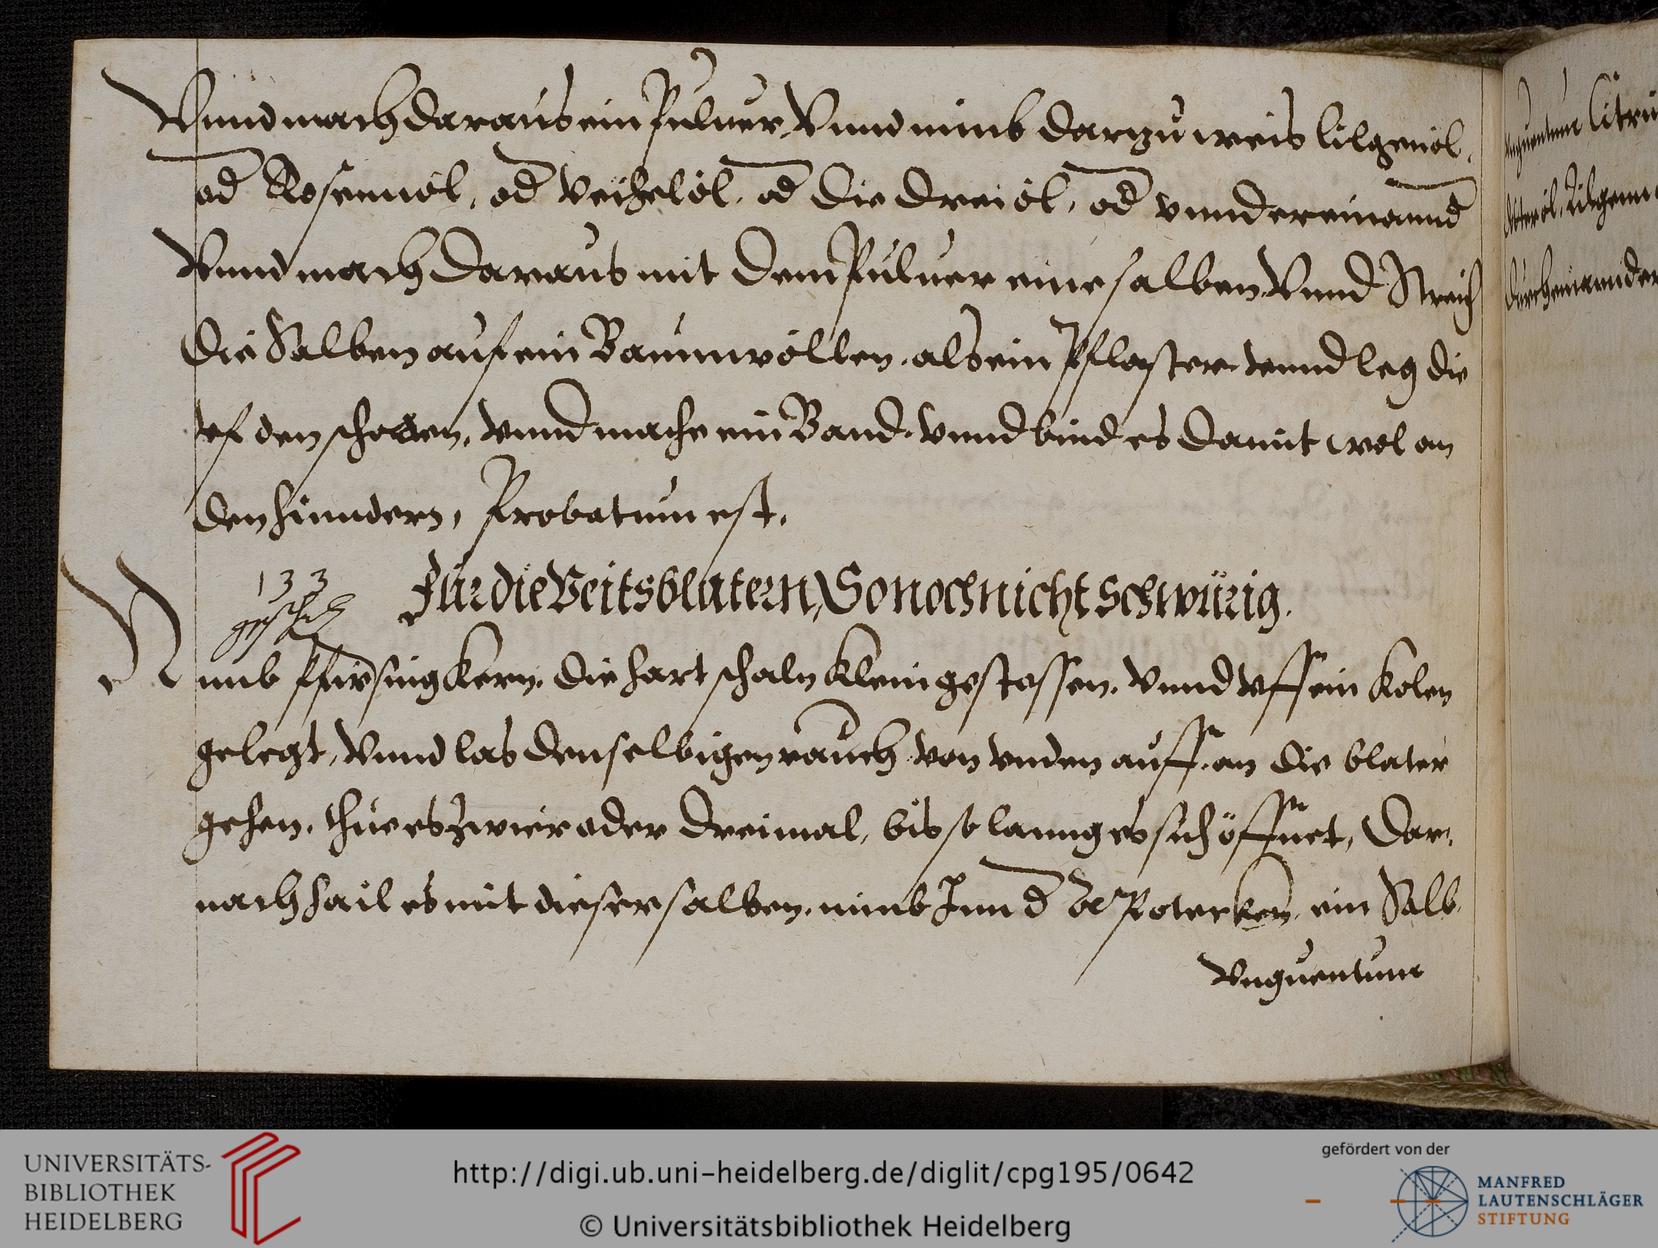 Vnnd mach daraus ein Puluer, Vnnd nimb darzu weis lilgenöl,
od Rosennöl, od Veihelöl, od die drei öl, od vnndereinannd
Vnnd mach daraus mit dem Puluer eine salben, Vnnd Streich
die Salben auf ein Baumwöllen, als ein Pflaster, vnnd leg die
vf den schaden, vnnd mache ein Band, vnnd bind es damit wol an
den hinndern, Probatum est.
133
Für die Veitsblatern, So noch nicht Schwürig.
Nimb Pfirsing Kern, die hart schaln klein gestossen, vnnd vff ein kolen
gelegt, Vnnd las denselbigen rauch von vnden auff, an die blater
gehen, thue es zwier oder dreimal, bis so lanng es sich öffnet, Dar,
nach hail es mit dieser salben, nimb Inn d Apotecken, ein Salb
Vnguentum
Vnguentum Citri
Lilgenn
durcheinannder
UNIVERSITÄTS-
BIBLIOTHEK
HEIDELBERG
http://digi.ub.uni-heidelberg.de/diglit/cpg195/0642
© Universitätsbibliothek Heidelberg
gefördert von der
MANFRED
LAUTENSCHLÄGER
STIFTUNG